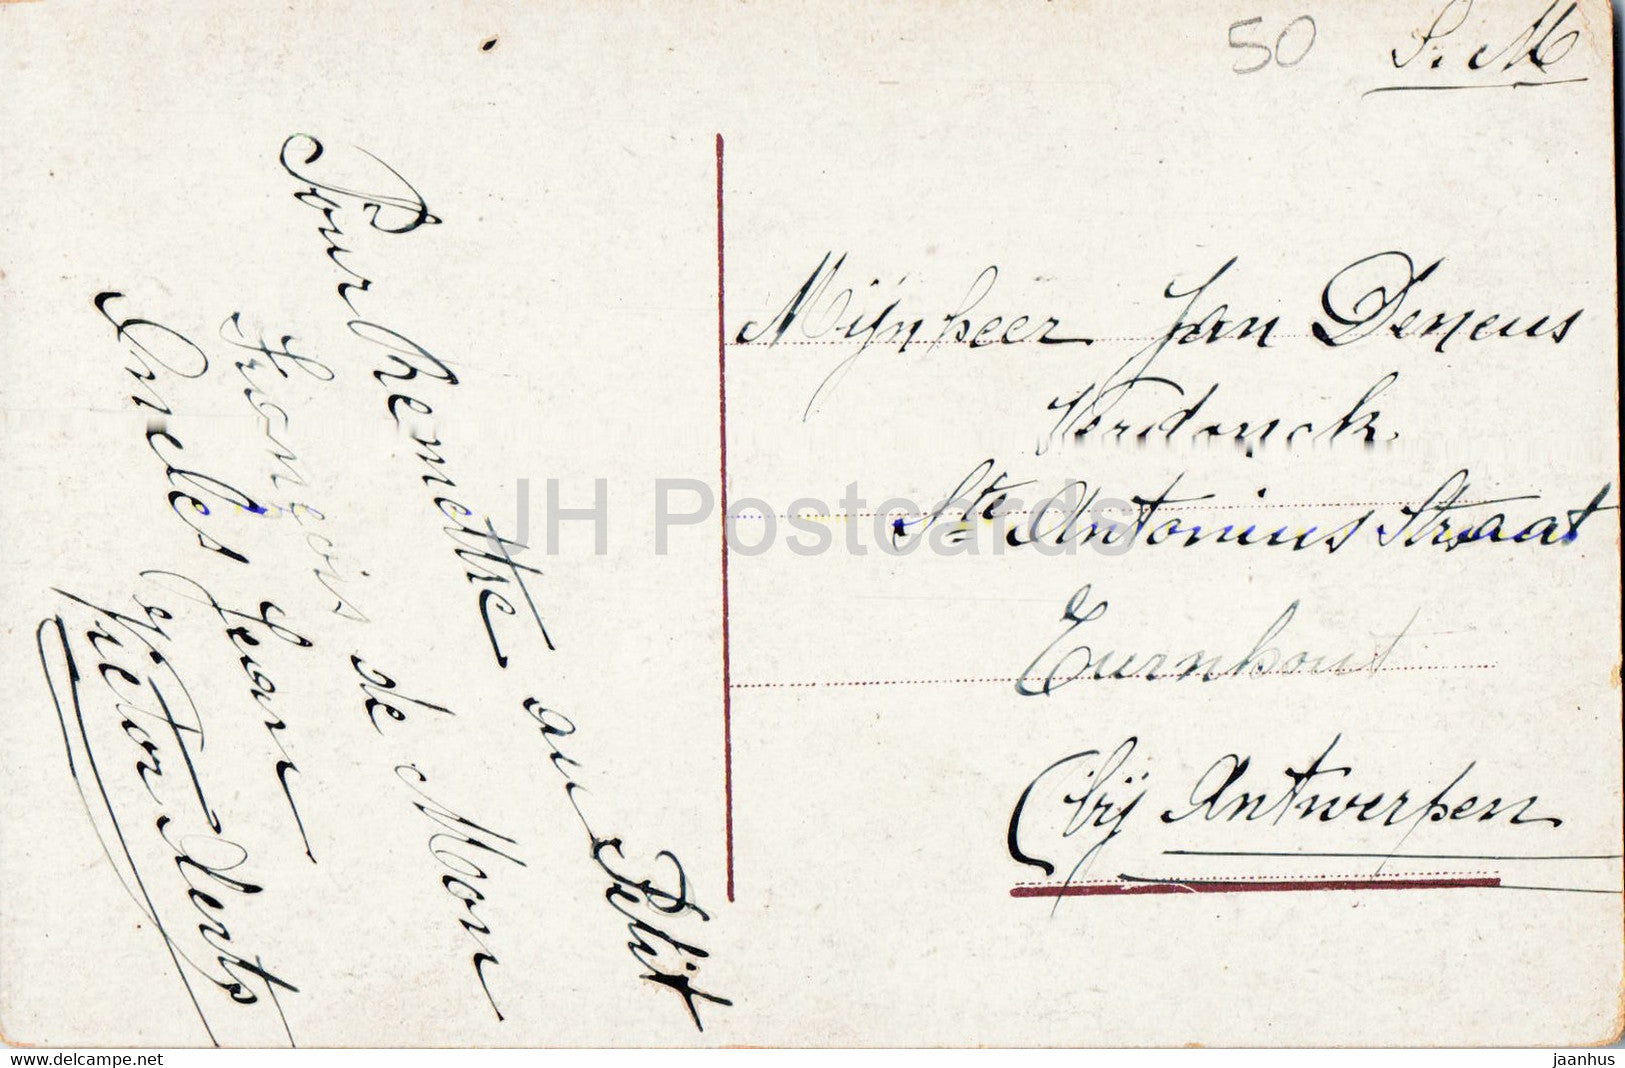 50
S.M
Pour remettre au Petit
François de Mon
Oncles Jean
et Victor Aerts
Mijnheer Jan Deneus
Verdonck.
Ste Antonius Straat
Turnhout
(bij Antwerpen
JH Postcards
www.delcampe.net
jaanhus